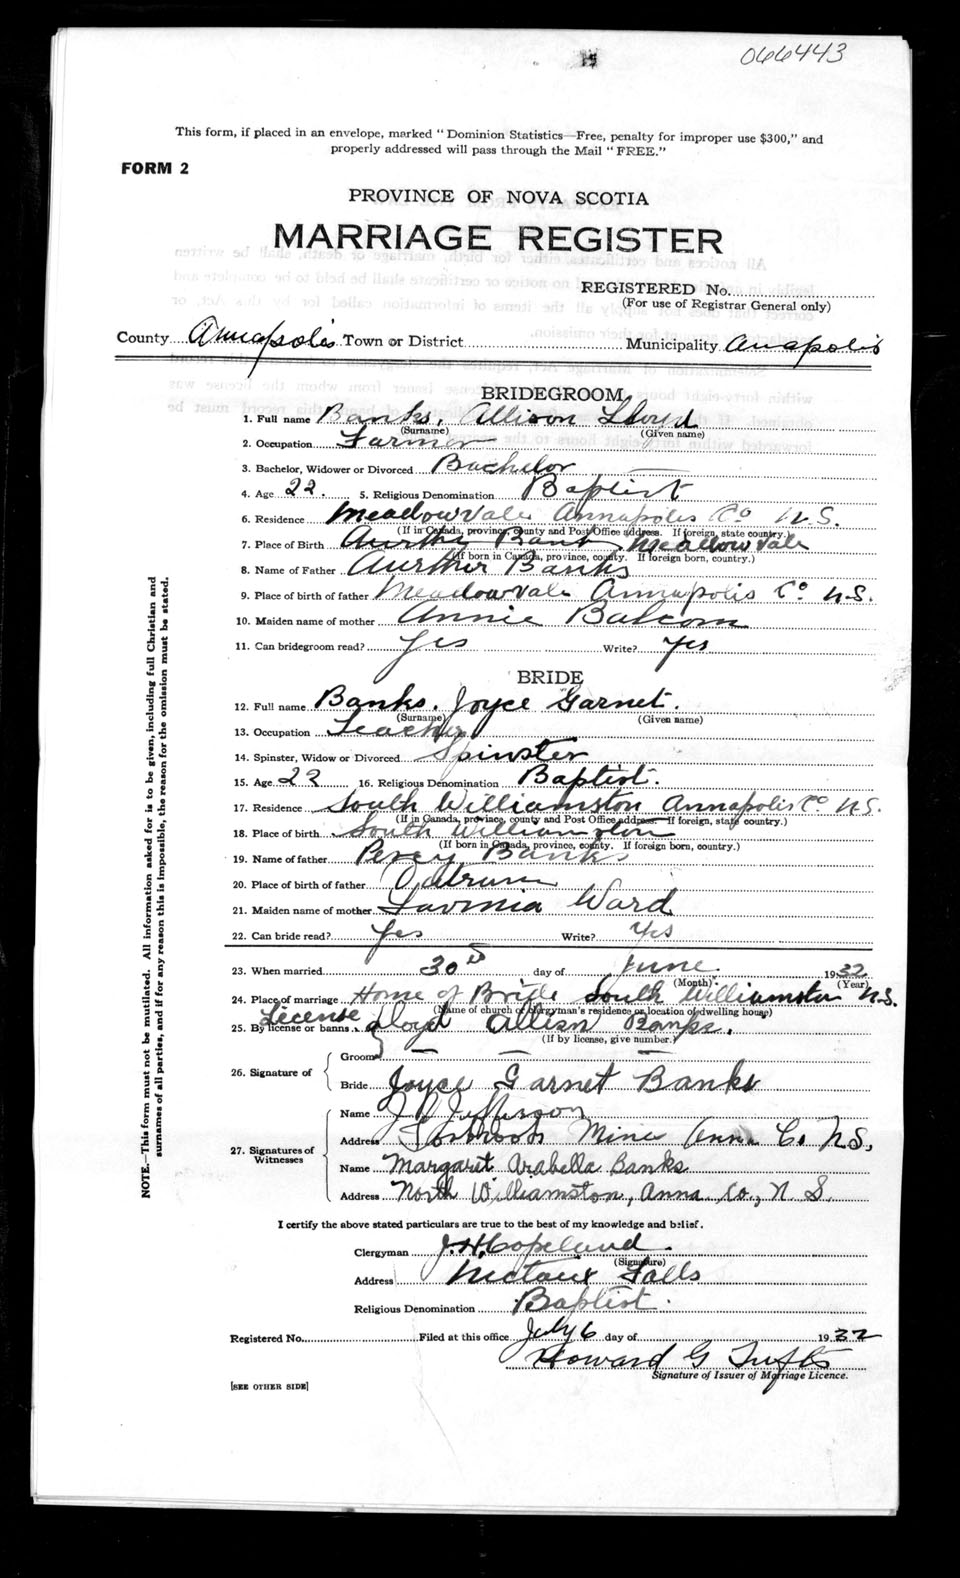 066443
This form, if placed in an envelope, marked "Dominion Statistics—Free, penalty for improper use $300," and
properly addressed will pass through the Mail "FREE."
FORM 2
PROVINCE OF NOVA SCOTIA
MARRIAGE REGISTER
REGISTERED No.
(For use of Registrar General only)
County Annapolis Town or District Municipality Anapolis
BRIDEGROOM
1. Full name Banks, Allison Lloyd
(Surname) (Given name)
2. Occupation Farmer
3. Bachelor, Widower or Divorced Bachelor
4. Age 22. 5. Religious Denomination Baptist
6. Residence Meadowvale Annapolis Co N.S.
(If in Canada, province, county and Post Office address. If foreign, state country.)
7. Place of Birth Meadowvale
(If born in Canada, province, county. If foreign born, country.)
8. Name of Father Aurthur Banks
9. Place of birth of father Meadowvale Annapolis Co N.S.
10. Maiden name of mother Annie Balcom
11. Can bridegroom read? Yes Write? Yes
BRIDE
12. Full name Banks, Joyce Garnet.
(Surname) (Given name)
13. Occupation Teacher
14. Spinster, Widow or Divorced Spinster
15. Age 22 16. Religious Denomination Baptist.
17. Residence South Williamston Annapolis Co N.S.
(If in Canada, province, county and Post Office address. If foreign, state country.)
18. Place of birth South Williamston
(If born in Canada, province, county. If foreign born, country.)
19. Name of father Percy Banks
20. Place of birth of father
21. Maiden name of mother Lavinia Ward
22. Can bride read? Yes Write? Yes
23. When married 30th day of June 1932
(Month) (Year)
24. Place of marriage Home of Bride South Williamston N.S.
(Name of church or clergyman's residence or location of dwelling house)
License
25. By license or banns Lloyd Allison Banks.
(If by license, give number.)
26. Signature of
Groom
Bride Joyce Garnet Banks
27. Signatures of
Witnesses
Name Jefferson
Address Torbrook Mine Anna Co N.S,
Name Margaret Arabella Banks
Address North Williamston, Anna. Co., N. S.
I certify the above stated particulars are true to the best of my knowledge and belief.
Clergyman J.H. Copeland.
(Signature)
Address Nictaux Falls
Religious Denomination Baptist.
Registered No. Filed at this office July 6 day of 1932
Howard G Tufts
Signature of Issuer of Marriage Licence.
[SEE OTHER SIDE]
NOTE.—This form must not be mutilated. All information asked for is to be given, including full Christian and
surnames of all parties, and if for any reason this is impossible, the reason for the omission must be stated.